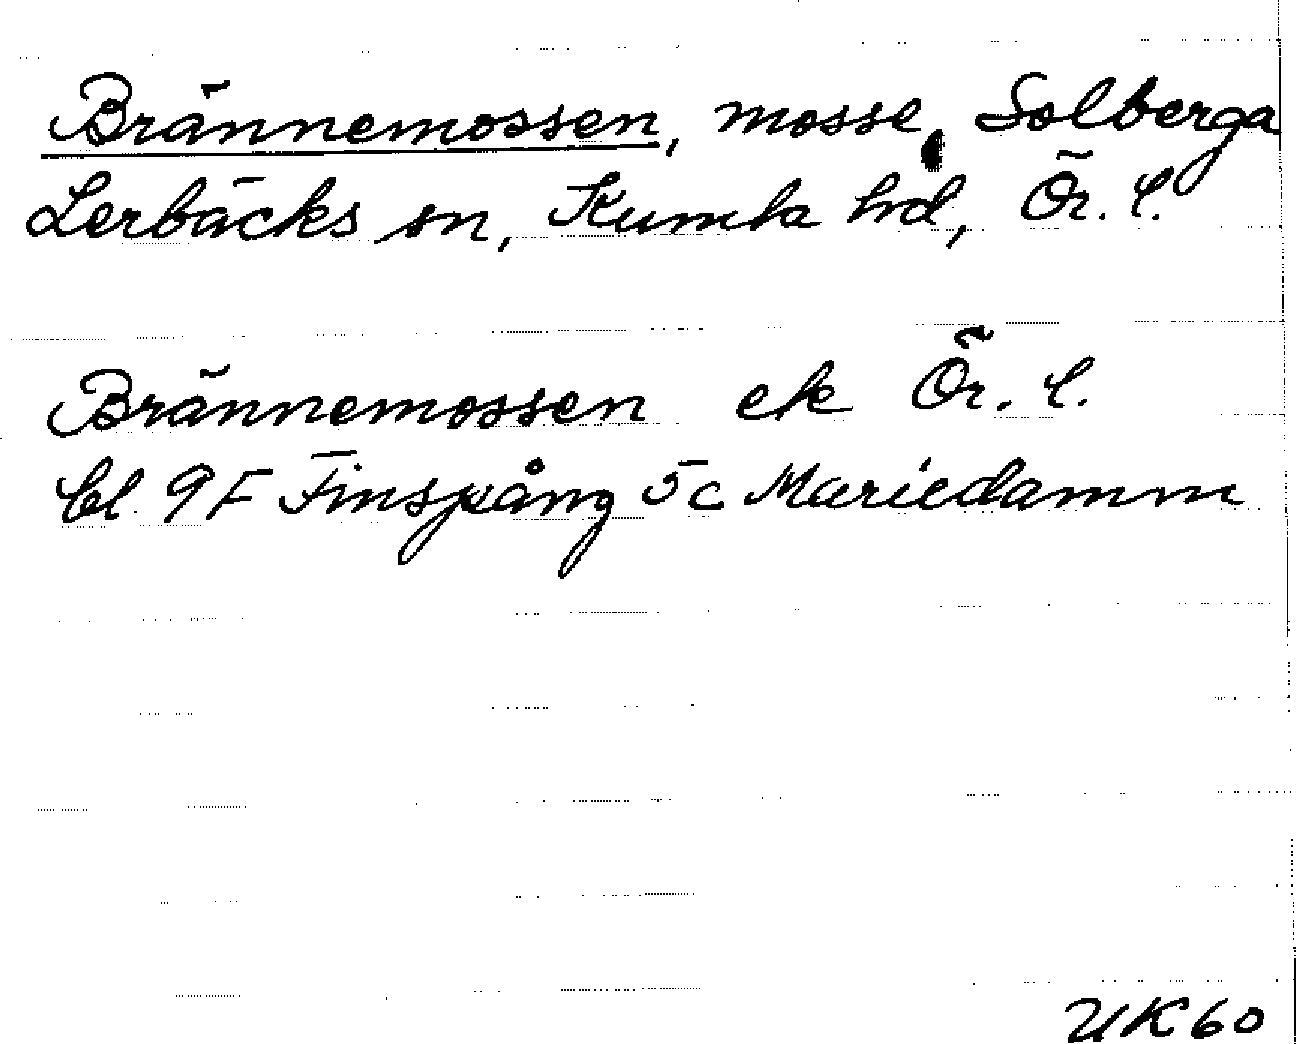 Brännemossen, mosse, Solberga
Lerbäcks sn, Kumla hd, Ör. l.
Brännemossen ek Ör. l.
bl 9F Finspång 5c Mariedamm
UK60